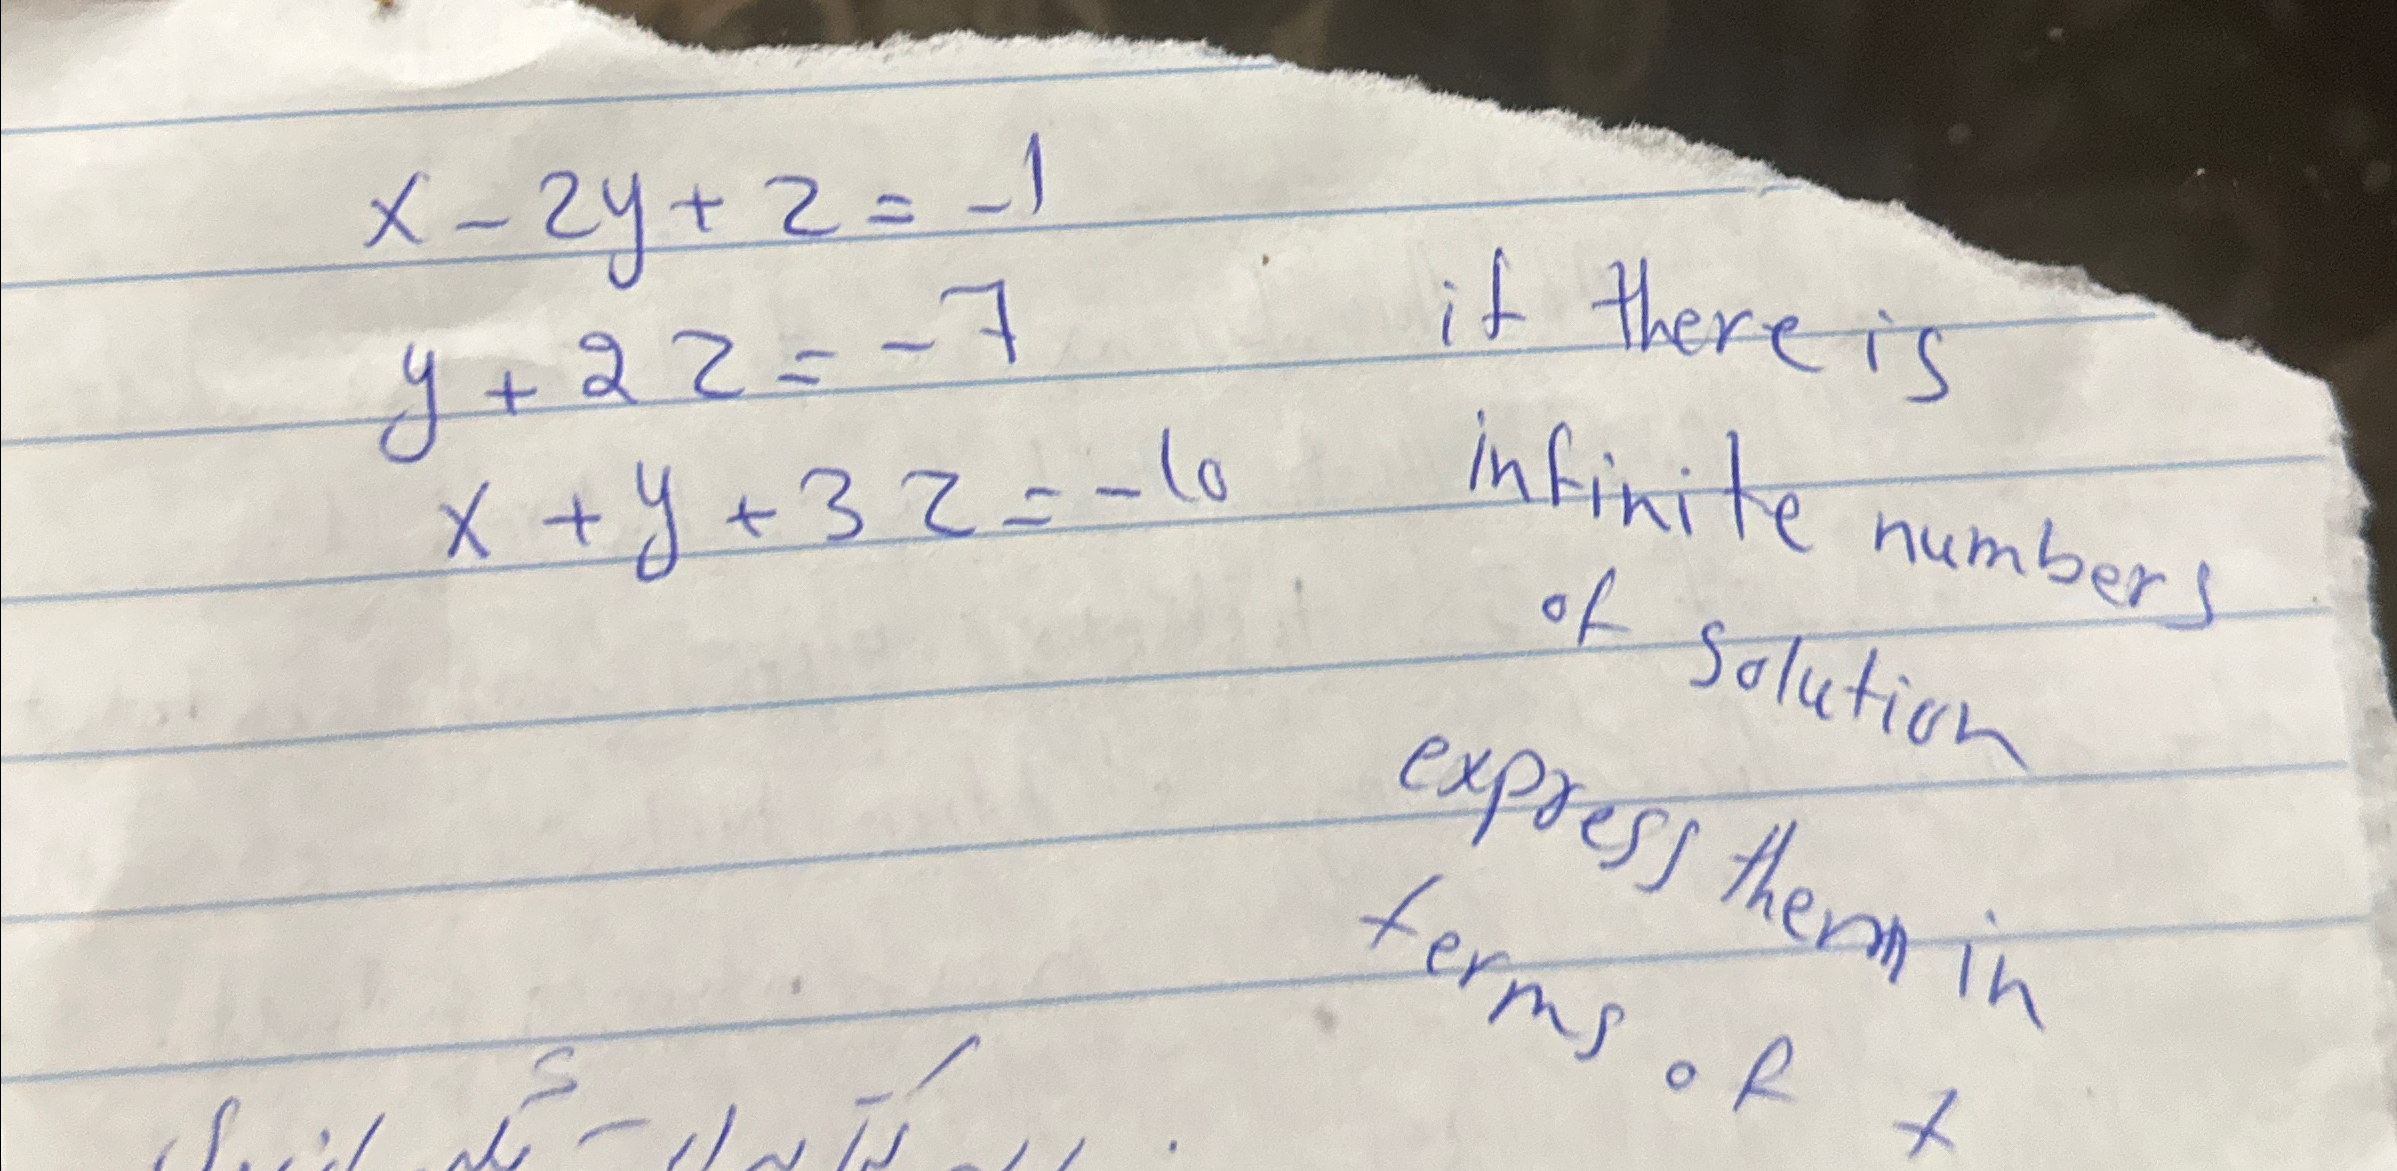 x - 2y + z = -1
y + 2z = -7
x + y + 3z = -10
if there is
infinite numbers
of solution
express them in
terms of t